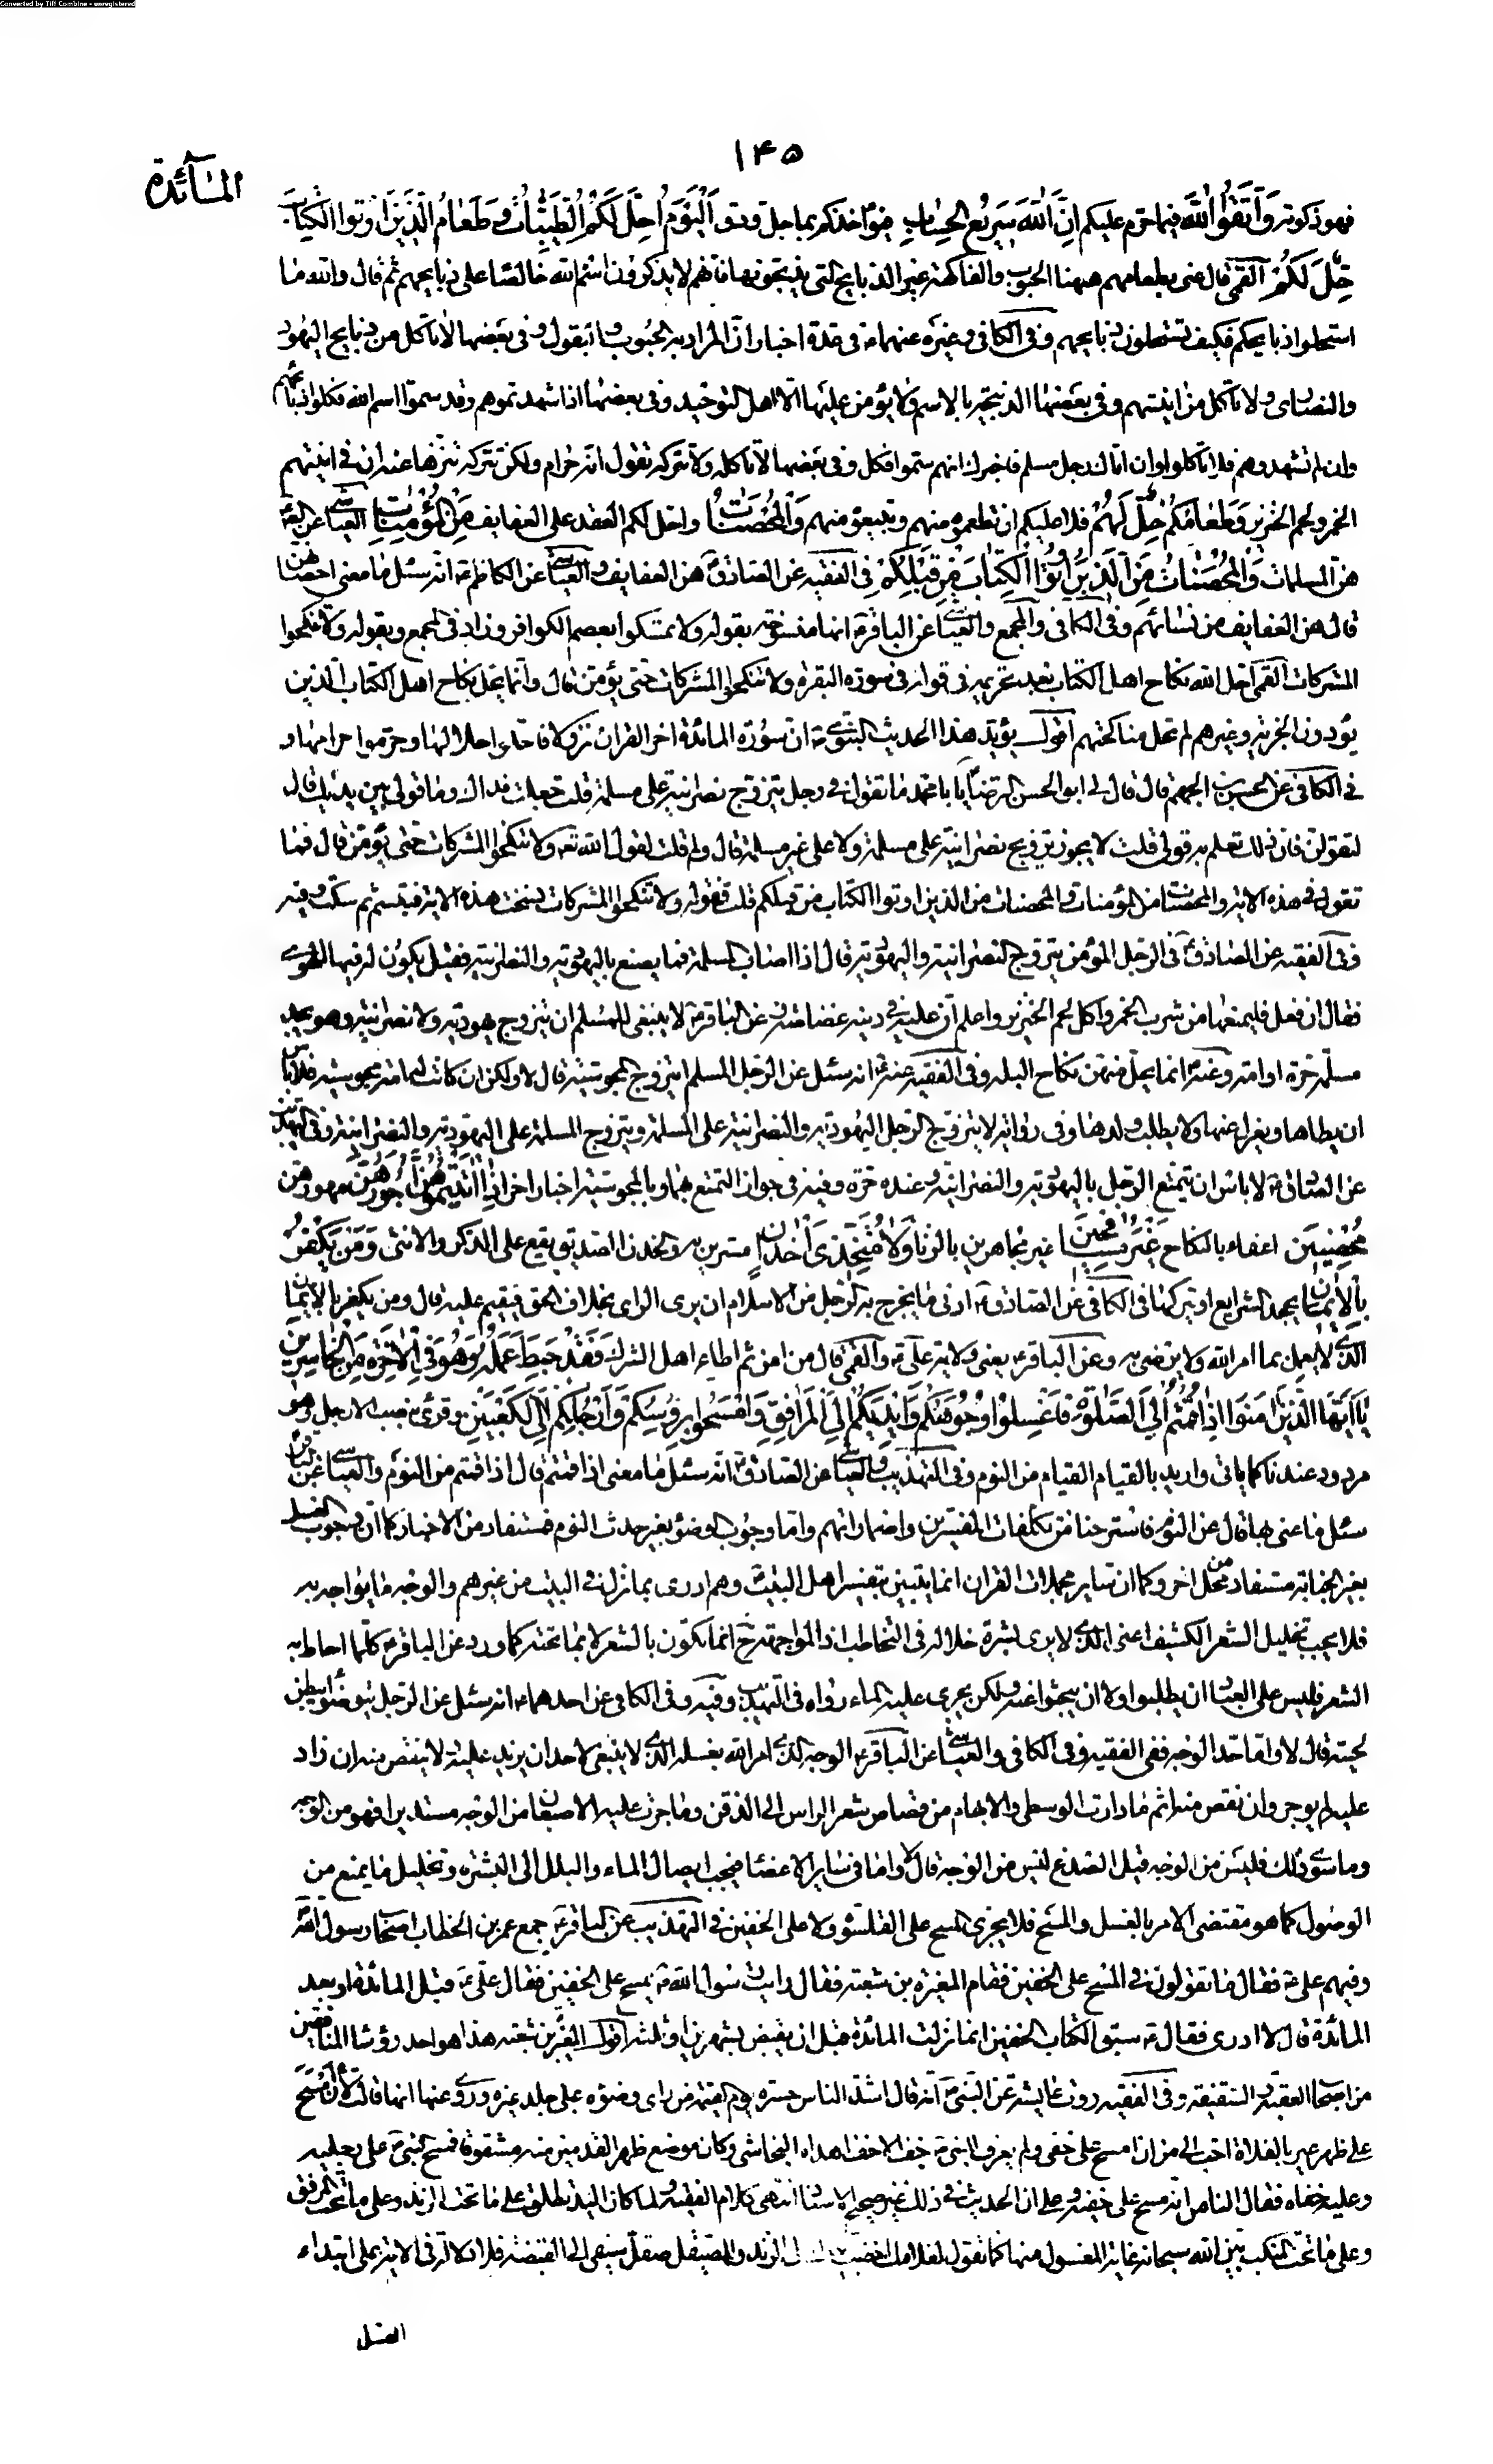 Converted by Tiff Combine - unregistered
١۴۵
المائدة
فهو ذكوته وَاتَّقُوا اللَّهَ فيما حرّم عليكم اِنَّ اللَّهَ سَرِيعُ الْحِسَابِ فيؤاخذكم بما جل ودق اَلْيَوْمَ اُحِلَّ لَكُمُ الطَّيِّبَاتُ وَطَعَامُ الَّذِينَ اُوتُوا الْكِتَابَ
حِلٌّ لَكُمْ القمى قال عنى بطعامهم ههنا الحبوب والفاكهة غير الذبايح التى يذبحونها فانهم لا يذكرون اسم الله خالصا على ذبايحهم ثم قال والله ما
استحلوا ذبايحكم فكيف تستحلون ذبايحهم وفى الكافى وغيره عنهما ع فى عدة اخبار ان المراد به الحبوب والبقول وفى بعضها لا تاكل من ذبايح اليهود
والنصارى ولا تاكل من انيتهم وفى بعضها الذبيحة بالاسم ولا يؤمن عليها الا اهل التوحيد وفى بعضها اذا شهدتموهم وقد سموا اسم الله فكلوا ذبائحهم
وان لم تشهدوهم فلا تاكلوا وان اتاك رجل مسلم فاخبرك انهم سموا فكل وفى بعضها لا تاكله ولا تتركه تقول انه حرام ولكن تتركه تنزها عنه ان فى انيتهم
الخمر ولحم الخنزير وَطَعَامُكُمْ حِلٌّ لَهُمْ فلا عليكم ان تطعموه منهم وتبيعوه منهم وَالْمُحْصَنَاتُ واحل لكم العقد على العفايف مِنَ الْمُؤْمِنَاتِ العياشى عن الصادق
هن المسلمات وَالْمُحْصَنَاتُ مِنَ الَّذِينَ اُوتُوا الْكِتَابَ مِنْ قَبْلِكُمْ فى الفقيه عن الصادق هن العفايف والعياشى عن الكاظم ع انه سئل ما معنى احصانهن
قال هن العفايف من نسائهم وفى الكافى والمجمع والعياشى عن الباقر ع انها منسوخة بقوله ولا تمسكوا بعصم الكوافر وزاد فى المجمع وبقوله ولا تنكحوا
المشركات القمى احل الله نكاح اهل الكتاب بعد تحريمه فى قوله فى سورة البقرة ولا تنكحوا المشركات حتى يؤمن قال وانما يحل نكاح اهل الكتاب الذين
يؤدون الجزية وغيرهم لم تحل مناكحتهم اقول يؤيد هذا الحديث النبوى ص ان سورة المائدة اخر القران نزولا فاحلوا حلالها وحرموا حرامها و
فى الكافى عن الحسن بن الجهم قال قال لى ابو الحسن الرضا يا با محمد ما تقول فى رجل يتزوج نصرانية على مسلمة قلت جعلت فداك وما قولى بين يديك قال
لتقولن فان ذلك تعلم به قولى قلت لا يجوز تزويج نصرانية على مسلمة ولا على غير مسلمة قال ولم قلت لقول الله تعه ولا تنكحوا المشركات حتى يؤمن قال فما
تقول فى هذه الاية والمحصنات من المؤمنات والمحصنات من الذين اوتوا الكتاب من قبلكم قلت فقوله ولا تنكحوا المشركات نسخت هذه الاية فتبسم ثم سكت وفيه
وفى الفقيه عن الصادق ع فى الرجل المؤمن يتزوج النصرانية واليهودية قال اذا اصاب المسلمة فما يصنع باليهودية والنصرانية فقيل يكون له فيها الهوى
فقال ان فعل فليمنعها من شرب الخمر واكل لحم الخنزير واعلم ان عليه فى دينه غضاضة وعن الباقر ع لا ينبغى للمسلم ان يتزوج يهودية ولا نصرانية وهو يجد
مسلمة حرة او امة وعنه ع انما يحل منهن نكاح البله وفى الفقيه عنه ع انه سئل عن الرجل المسلم ايتزوج المجوسية قال لا ولكن ان كانت له امة مجوسية فلا باس
ان يطاها ويعزل عنها ولا يطلب ولدها وفى رواية لا يتزوج الرجل اليهودية والنصرانية على المسلمة ويتزوج المسلمة على اليهودية والنصرانية وفى التهذيب
عن الصادق ع لا باس ان يتمتع الرجل باليهودية والنصرانية وعنده حرة وفيه فى جواز التمتع بهما وبالمجوسية اخبار اخر اِذَا اٰتَيْتُمُوهُنَّ اُجُورَهُنَّ مهورهن
مُحْصِنِينَ اعفاء بالنكاح غَيْرَ مُسَافِحِينَ غير مجاهرين بالزنا وَلَا مُتَّخِذِى اَخْدَانٍ مسرين به والخدن الصديق يقع على الذكر والانثى وَمَنْ يَكْفُرْ
بِالْاِيمَانِ بجحد الشرايع او تركها فى الكافى عن الصادق ع ادنى ما يخرج به الرجل من الاسلام ان يرى الراى بخلاف الحق فيقيم عليه قال ومن يكفر بالايمان
الذى لا يعمل بما امر الله ولا يرضى به وعن الباقر ع يعنى ولاية على ع والقمى قال من امن ثم اطاع اهل الشرك فَقَدْ حَبِطَ عَمَلُهُ وَهُوَ فِى الْاٰخِرَةِ مِنَ الْخَاسِرِينَ
يَا اَيُّهَا الَّذِينَ اٰمَنُوا اِذَا قُمْتُمْ اِلَى الصَّلٰوةِ فَاغْسِلُوا وُجُوهَكُمْ وَاَيْدِيَكُمْ اِلَى الْمَرَافِقِ وَامْسَحُوا بِرُؤُسِكُمْ وَاَرْجُلِكُمْ اِلَى الْكَعْبَيْنِ وقرئ بنصب الارجل وهو
مردود عندنا كما ياتى واريد بالقيام القيام من النوم وفى التهذيب والعياشى عن الصادق ع انه سئل ما معنى اذا قمتم قال اذا قمتم من النوم والعياشى عن الباقر
سئل ما عنى بها قال عن النوم فاسترحنا من تكلفات المفسرين واضماراتهم واما وجوب الوضوء بغير حدث النوم فمستفاد من الاخبار كما ان وجوب الغسل
بغير الجنابة مستفاد من محل اخر وكما ان ساير مجملات القران انما يتبين بتفسير اهل البيت وهم ادرى بما نزل فى البيت من غيرهم والوجه ما يواجه به
فلا يجب تخليل الشعر الكثيف اعنى الذى لا يرى البشرة خلاله فى التخاطب اذ المواجهة ح انما تكون بالشعر لا بما تحته كما ورد عن الباقر ع كلما احاط به
الشعر فليس على العباد ان يطلبوا ولا ان يبحثوا عنه ولكن يجرى عليه الماء رواه فى التهذيب وفيه وفى الكافى عن احدهما ع انه سئل عن الرجل يتوضأ ايبطن
لحيته قال لا واما حد الوجه ففى الفقيه وفى الكافى والعياشى عن الباقر ع الوجه الذى امر الله بغسله الذى لا ينبغى لاحد ان يزيد عليه ولا ينقص منه ان زاد
عليه لم يوجر وان نقص منه اثم ما دارت الوسطى والابهام من قصاص شعر الراس الى الذقن وما جرت عليه الاصبعان من الوجه مستديرا فهو من الوجه
وما سوى ذلك فليس من الوجه قيل الصدغ ليس من الوجه قال لا واما فى ساير الاعضاء فيجب ايصال الماء والبلل الى البشرة وتخليل ما يمنع من
الوصول كما هو مقتضى الامر بالغسل والمسح فلا يجزى المسح على القلنسوة ولا على الخفين فى التهذيب عن الباقر ع جمع عمر بن الخطاب اصحاب رسول الله
وفيهم على ع فقال ما تقولون فى المسح على الخفين فقام المغيرة بن شعبة فقال رايت رسول الله ص يمسح على الخفين فقال على ع قبل المائدة او بعد
المائدة قال لا ادرى فقال ع سبق الكتاب الخفين انما نزلت المائدة قبل ان يقبض بشهرين او ثلثة اقول المغيرة بن شعبة هذا هو احد رؤساء المنافقين
من اصحاب العقبة والسقيفة وفى الفقيه روت عايشة عن النبى ص انه قال اشد الناس حسرة يوم القيمة من راى وضوئه على جلد غيره وروى عنها انها قالت لان امسح
على ظهر عير بالفلاة احب الى من ان امسح على خفى ولم يعرف النبى ص خف الا خف اهداه النجاشى وكان موضع ظهر القدمين منه مشقوقا فمسح النبى ص على رجليه
وعليه خفاه فقال الناس انه مسح على خفيه وعلى ان الحديث فى ذلك غير صحيح الاسناد انتهى كلام الفقيه ولما كان اليد تطلق على ما تحت الزند وعلى ما تحت المرفق
وعلى ما تحت المنكب بين الله سبحانه غاية المغسول منها كما تقول لغلامك اخضب يدك الى الزند وللصيقل صقل سيفى الى القبضة فلا دلالة فى الاية على ابتداء
الغسل